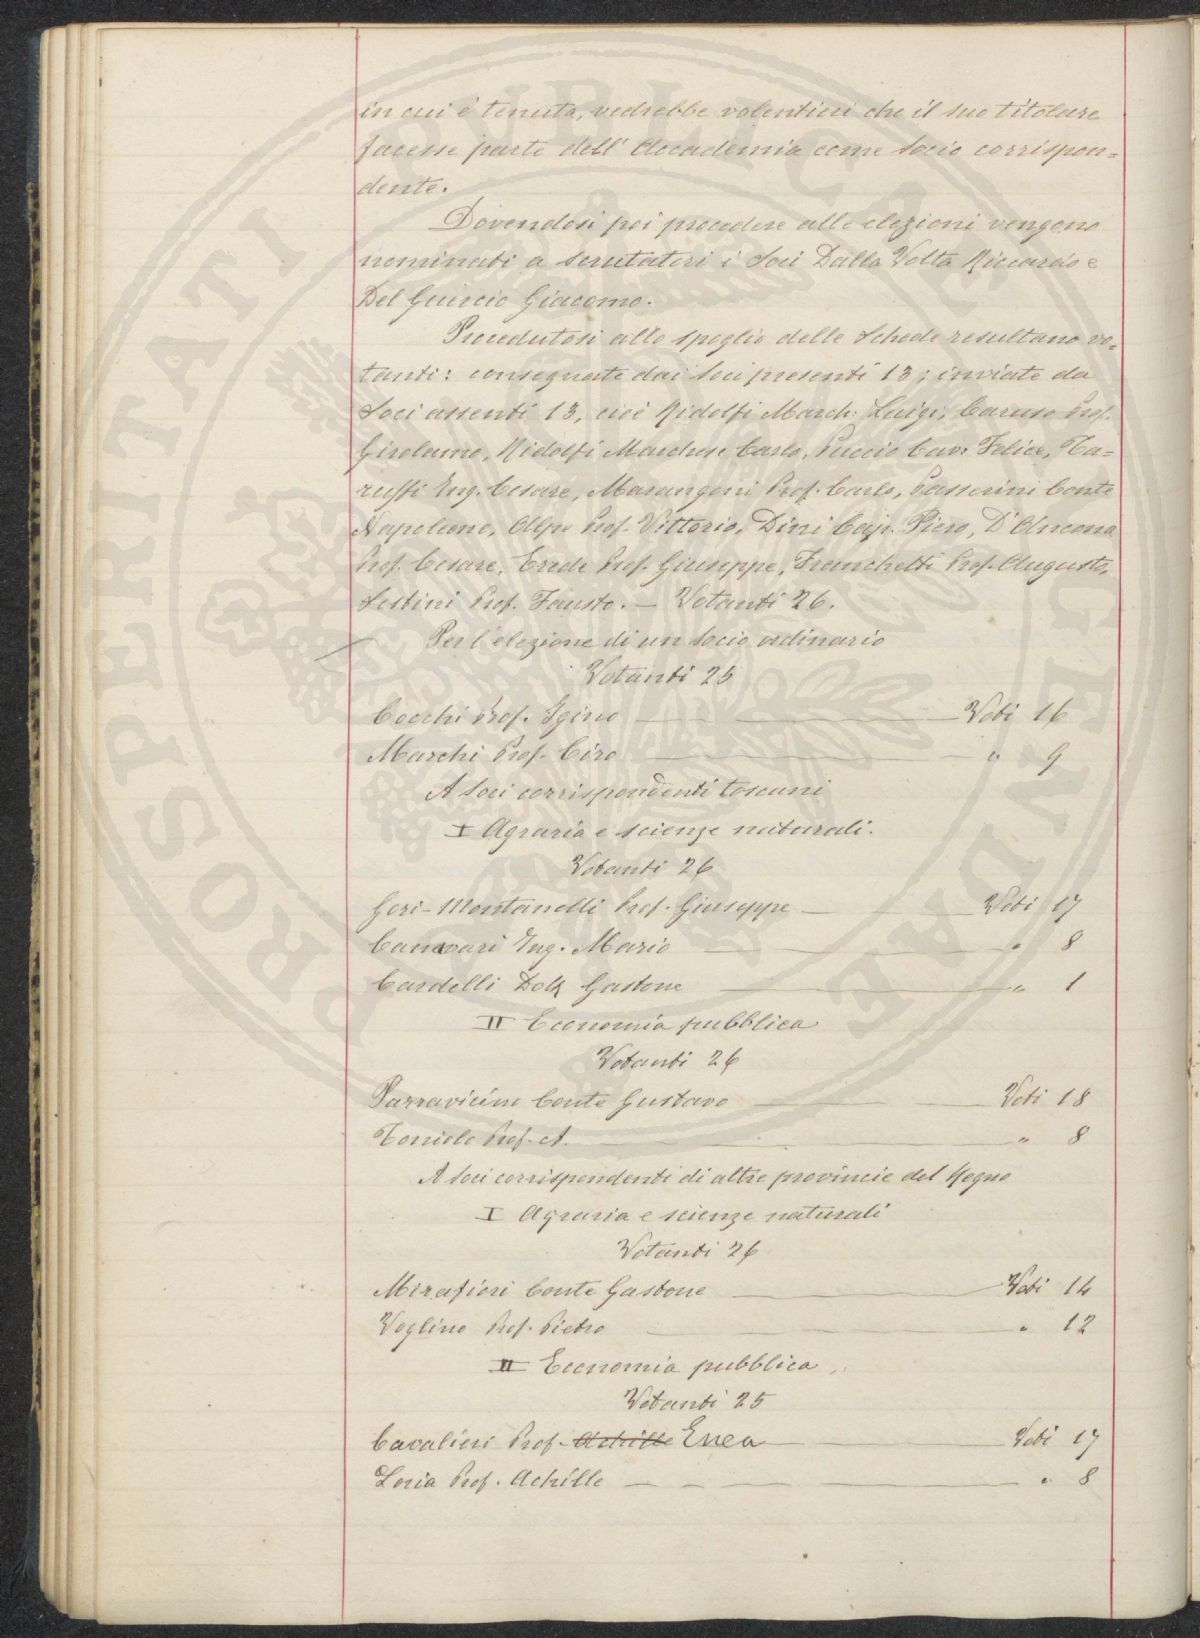 in cui è tenuta, vedrebbe volentieri che il suo titolare
facesse parte dell' Accademia come Socio corrispon=
dente.
Dovendosi poi procedere alle elezioni vengono
nominati a scrutatori i Soci Dalla Volta Riccardo e
Del Guercio Giacomo.
Procedutosi allo spoglio delle Schede resultano vo=
tanti: consegnate dai Soci presenti 13; inviate da
Soci assenti 13, cioè Ridolfi March: Luigi, Caruso Prof.
Girolamo, Ridolfi Marchese Carlo, Puccio Cav: Felice, Ta=
ruffi Ing. Cesare, Marangoni Prof. Carlo, Passerini Conte
Napoleone, Alpe Prof. Vittorio, Dini Cap. Piero, D'Ancona
Prof. Cesare, Erede Prof. Giuseppe, Franchetti Prof. Augusto,
Sestini Prof. Fausto. — Votanti 26.
Per l'elezione di un Socio ordinario
Votanti 25
Cocchi Prof. Igino — Voti 16
Marchi Prof. Ciro — " 9
A Soci corrispondenti toscani
I Agraria e scienze naturali.
Votanti 26
Gori-Montanelli Prof. Giuseppe — Voti 17
Canavari Ing. Mario — " 8
Cardelli Dott. Gastone — " 1
II Economia pubblica
Votanti 26
Parravicino Conte Gustavo — Voti 18
Toniolo Prof. A. — " 8
A Soci corrispondenti di altre provincie del Regno
I Agraria e scienze naturali
Votanti 26
Mirafiori Conte Gastone — Voti 14
Voglino Prof. Pietro — " 12
II Economia pubblica.
Votanti 25
Cavalieri Prof. Achille Enea — Voti 17
Loria Prof. Achille — " 8
PROSPERITATI PVBLICAE AVGENDAE